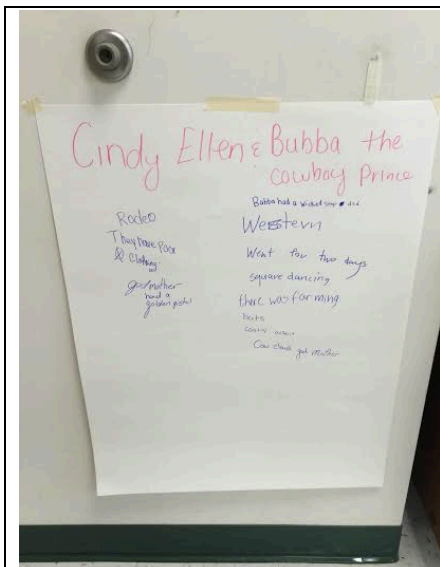 Cindy Ellen & Bubba the
cowboy Prince
Rodeo
They have Poor
Clothing
godmother
had a
golden pistol
Bubba had a wicked step dad
Western
Went for two days
square dancing
there was farming
hats
Cow
god mother